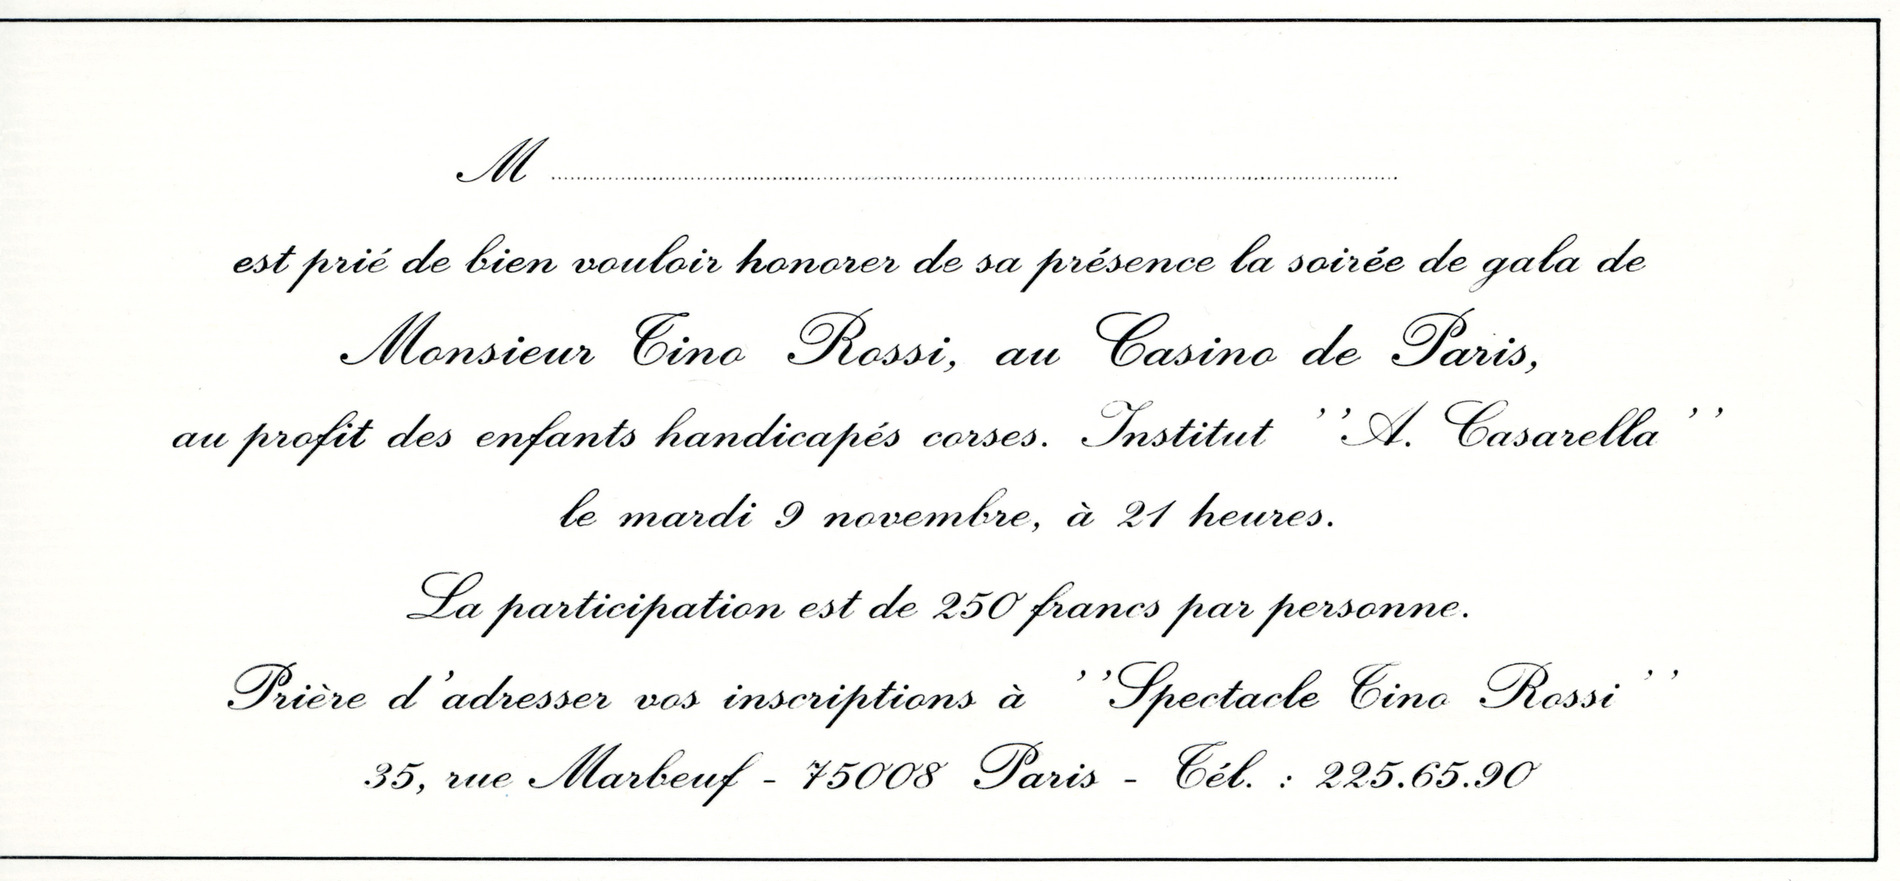 M ....................
est prié de bien vouloir honorer de sa présence la soirée de gala de
Monsieur Tino Rossi, au Casino de Paris,
au profit des enfants handicapés corses. Institut ''A. Casarella''
le mardi 9 novembre, à 21 heures.
La participation est de 250 francs par personne.
Prière d'adresser vos inscriptions à ''Spectacle Tino Rossi''
35, rue Marbeuf - 75008 Paris - Tél. : 225.65.90